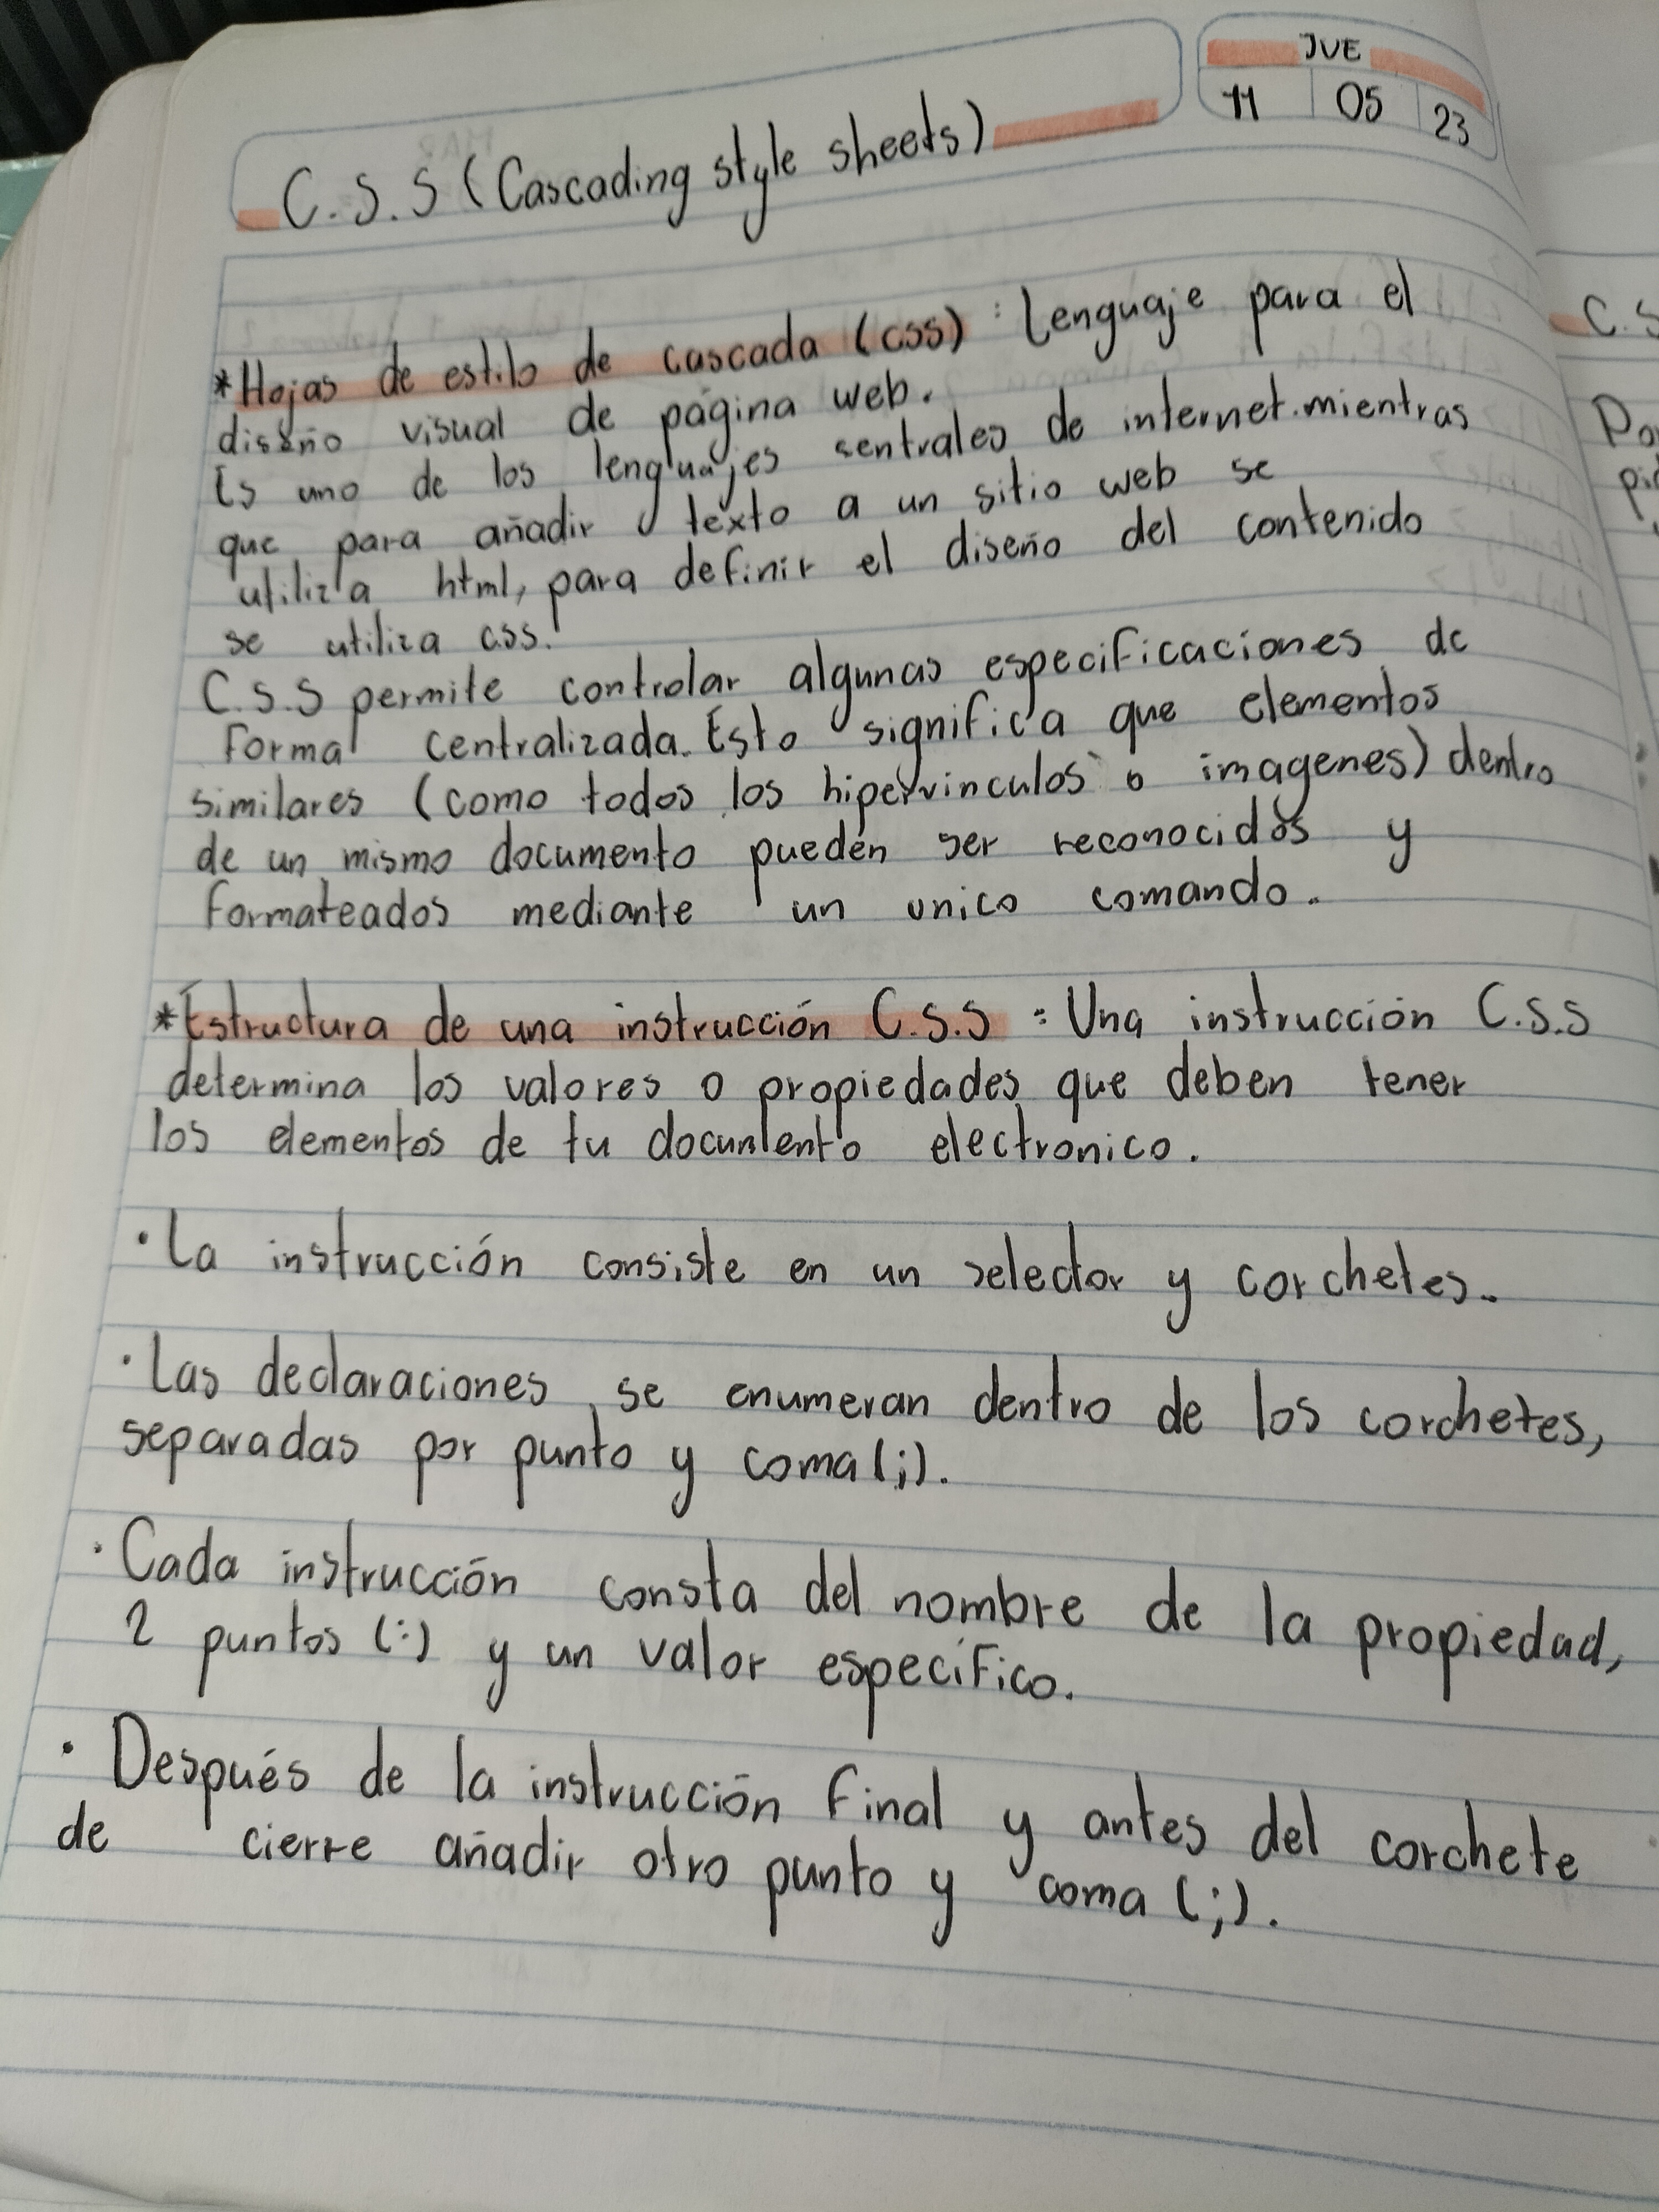 JUE
11 05 23
C.S.S (Cascading style sheets)
*Hojas de estilo de cascada (css) : Lenguaje para el
diseño visual de página web.
Es uno de los lenguajes sentrales de internet.mientras
que para añadir texto a un sitio web se
utiliza html, para definir el diseño del contenido
se utiliza css.
C.S.S permite controlar algunas especificaciones de
forma centralizada. Esto significa que elementos
similares (como todos los hipervinculos o imagenes) dentro
de un mismo documento pueden ser reconocidos y
formateados mediante un unico comando.
*Estructura de una instrucción C.S.S : Una instrucción C.S.S
determina los valores o propiedades que deben tener
los elementos de tu documento electronico.
· La instrucción consiste en un selector y corchetes.
· Las declaraciones se enumeran dentro de los corchetes,
separadas por punto y coma(;).
· Cada instrucción consta del nombre de la propiedad,
2 puntos (:) y un valor específico.
· Después de la instrucción final y antes del corchete
de cierre añadir otro punto y coma (;).
C.S